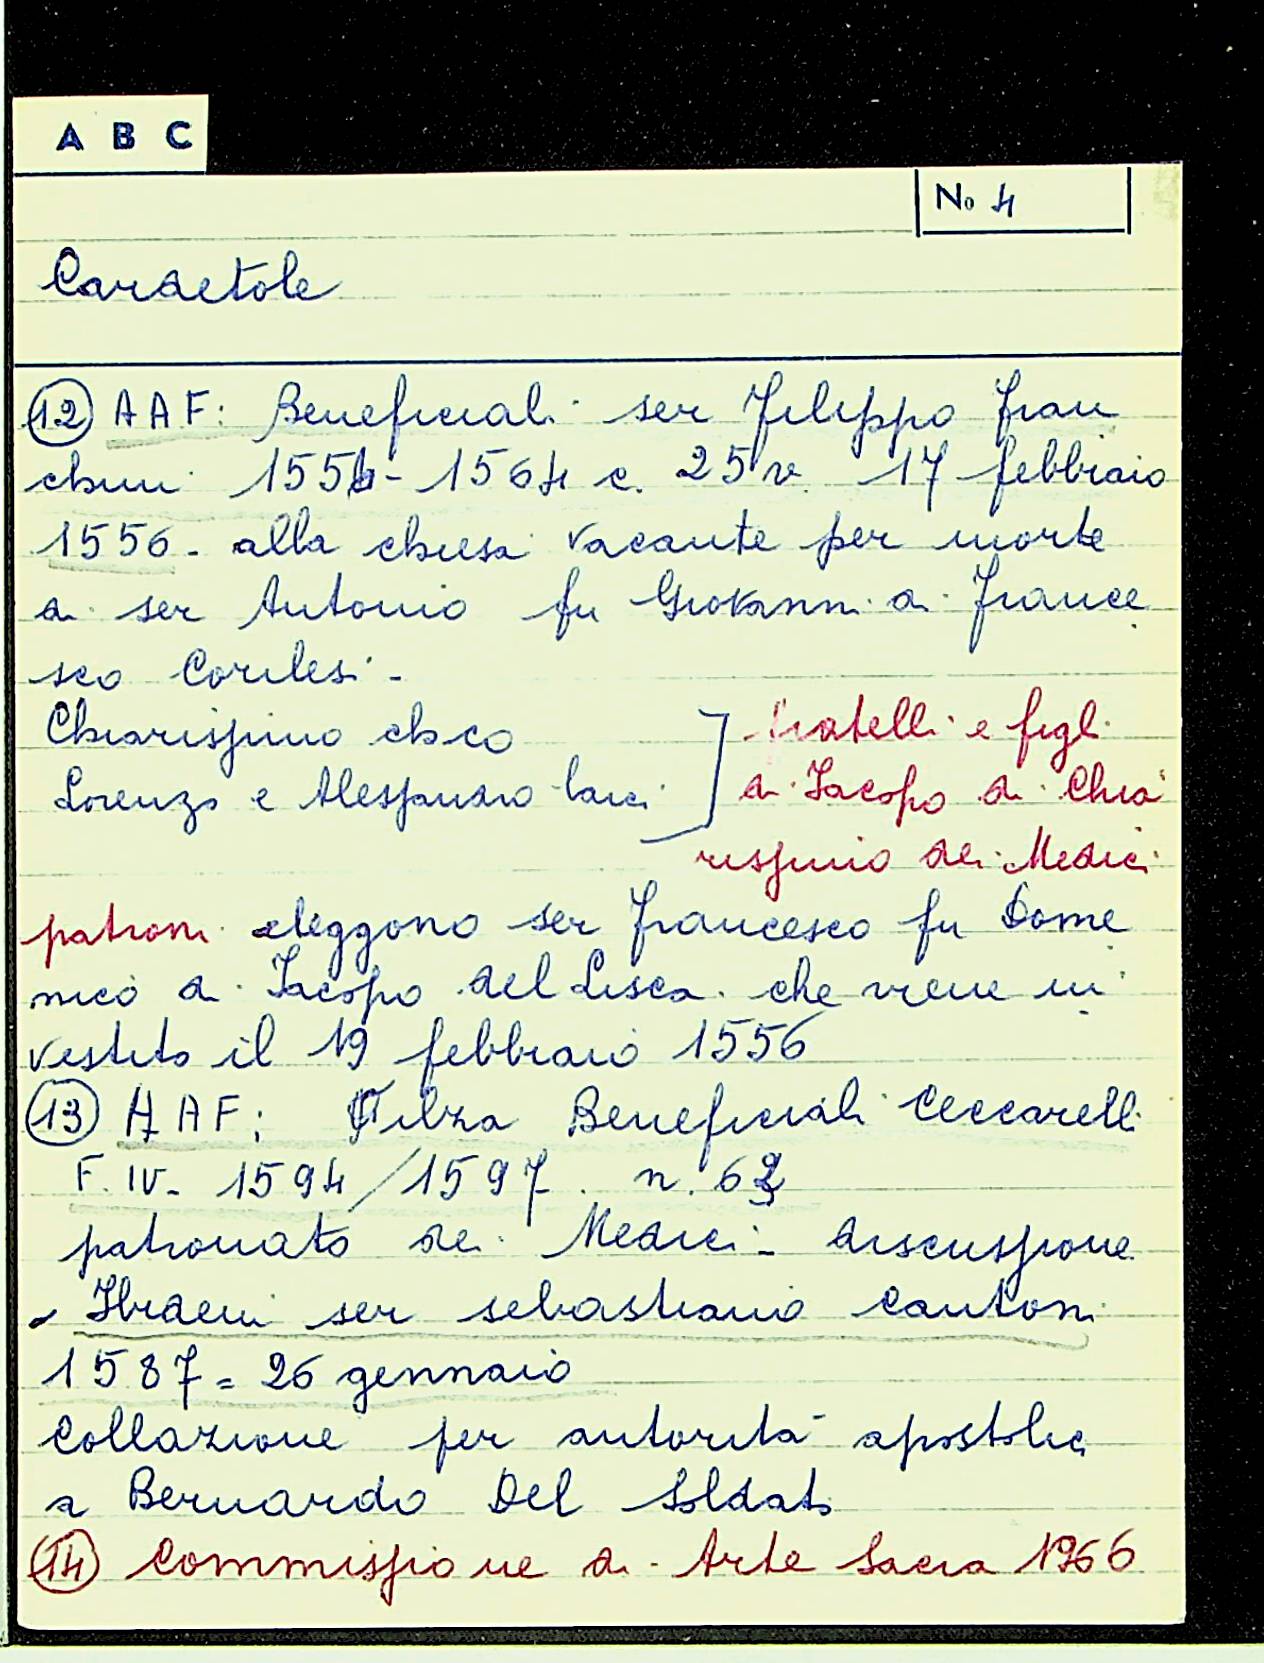 A B C
No 4
Cardetole
12 AAF: Beneficiali ser Filippo Fran
chini 1554-1564 c. 25v. 17 febbraio
1556 - alla chiesa vacante per morte
di ser Antonio fu Giovanni di France
sco Corilesi -
Chiarissimo chco
Lorenzo e Alessandro laici
fratelli e figli
di Jacopo di Chia
rissimo dei Medici
patroni eleggono ser Francesco fu Dome
nico di Jacopo del Lisca che viene in
vestito il 19 febbraio 1556
13 AAF: Filza Beneficiali Ceccarelli
F. IV - 1594/1597. n. 62
patronato dei Medici - discussione
- Ibidem ser sebastiano Cantoni
1587 = 26 gennaio
Collazione per autorità apostolica
a Bernardo Del Soldato
14 Commissione di Arte Sacra 1966